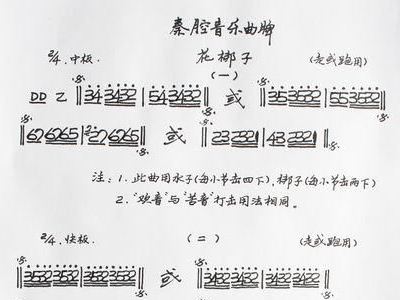 秦腔音乐曲牌
2/4.中板. 花梆子 (走或跑用)
(一)
DD 乙 ‖: 34 3432 | 54 3432 :‖ 或 ‖: 35 3532 | 55 3532 :‖
‖: 62 6265 | 22 6265 :‖ 或 ‖: 23 2321 | 43 2321 :‖
注:1.此曲用水子(每小节击四下),梆子(每小节击两下)
2."欢音"与"苦音"打击用法相同。
2/4.快板. (二) (走或跑用)
‖: 3532 3532 | 3532 3532 :‖ 或 ‖: 3432 3432 | 3432 3432 :‖